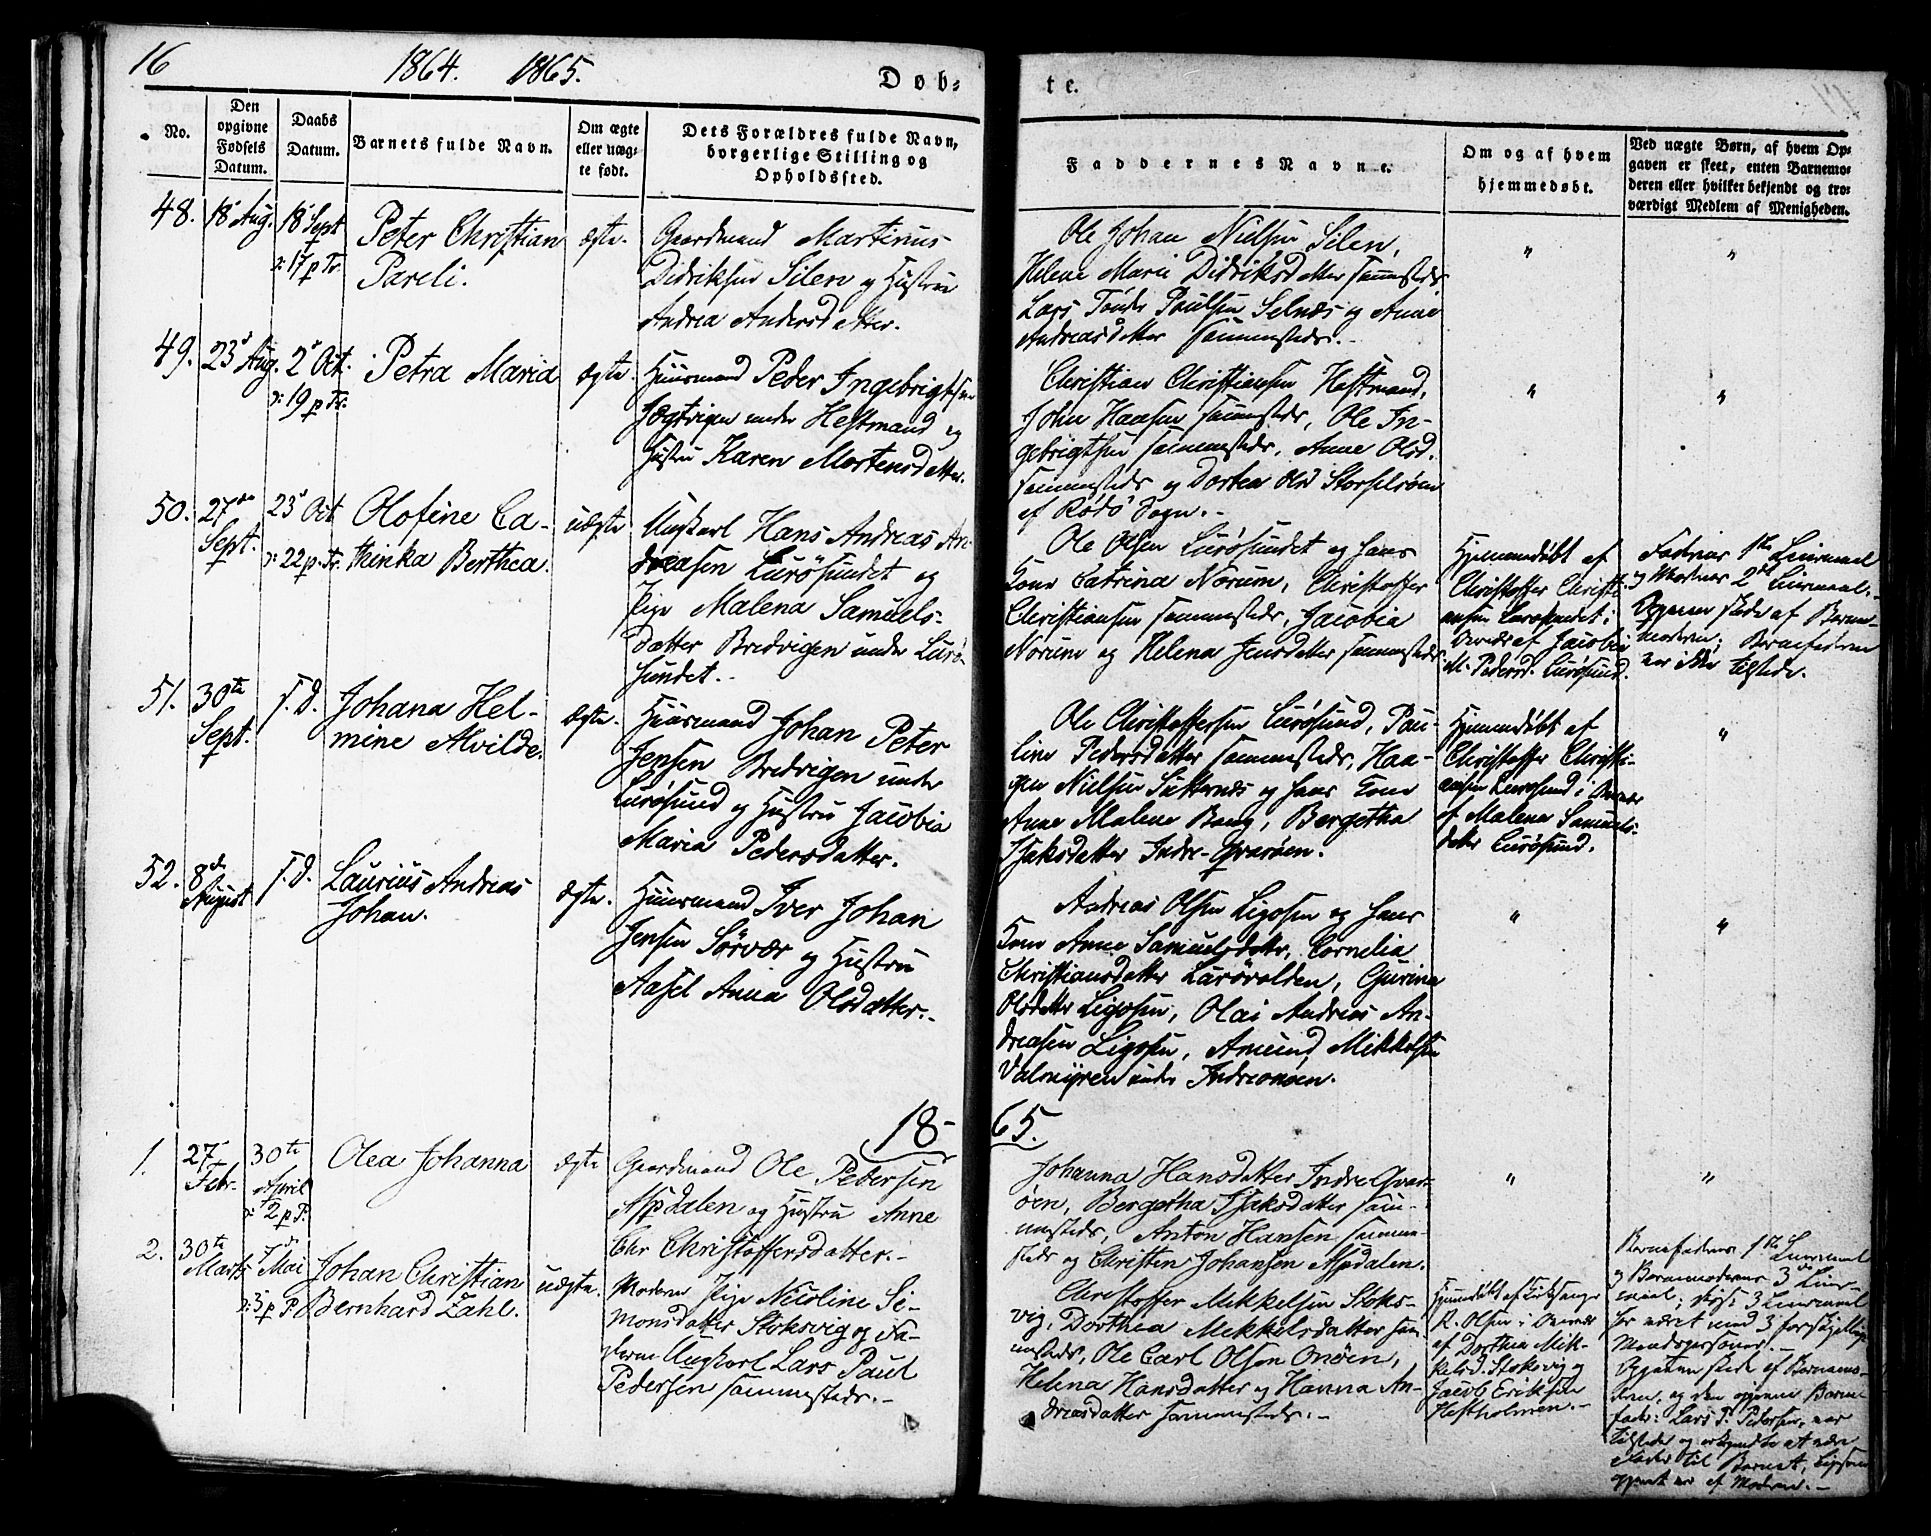 16
1864. 1865.
Døb-
te.
No.
Den opgivne Fødsels Datum.
Daabs Datum.
Barnets fulde Navn.
Om ægte eller uægte født.
Dets Forældres fulde Navn, borgerlige Stilling og Opholdssted.
Faddernes Navne.
Om og af hvem hjemmedøbt.
Ved uægte Børn, af hvem Op-
gaven er skeet, enten Barnemo-
deren eller hvilket bekjendt og tro-
værdigt Medlem af Menigheden.
48.
18 Aug.
18 Sept
17 p Tr.
Peter Christian
Pareli.
ægte.
Gaardmand Martinus
Didriksen Silen og Hustru
Andrea Andersdatter.
Ole Johan Nielsen Silen,
Helene Marie Didriksdatter sammesteds
Lars Tønder Paulsen Selnæs og Anne
Andreasdatter sammesteds.-
"
"
49.
23 Aug.
2 Oct.
19 p Tr.
Petra Maria
ægte.
Huusmand Peder Ingebrigtsen
Jægtvigen under Hestmand og
Hustru Karen Mortensdatter.
Christian Christiansen Hestmand,
John Hansen sammesteds, Ole In-
gebrigtsen sammesteds, Anne Olsd.
sammesteds og Dortea Olsd Storselsøen
af Rødø Sogn.-
"
"
50.
27de
Sept.
23 Oct
22 p. Tr.
Olofine Ca-
thinka Berthea.
uægte
Ungkarl Hans Andreas An-
dreasen Lurøsundet og
Pige Malena Samuels-
datter Bredvigen under Lurø-
sundet.-
Ole Olsen Lurøsundet og hans
Kone Catrina Norum, Christoffer
Christiansen sammesteds, Jacobia
Norum og Helena Jensdatter sammesteds
Hjemmedøbt af
Christoffer Christi-
ansen Lurøsundet i
Overvær af Jacobia
M. Pedersd. Lurøsund.
Faderens 1ste Leiermaal
og Moderens 2det Leiermaal.
Opgaven skede af Barne-
moderen; Barnefaderen
var ikke tilstede.
51.
30te
Sept.
S. D.
Johana Hel-
mine Alvilde.
ægte.
Huusmand Johan Peter
Jensen Bredvigen under
Lurøsund og Hustru Jacobia
Maria Pedersdatter.
Ole Christoffersen Lurøsund, Pau-
line Pedersdatter sammesteds, Haa-
gen Nielsen og hans Kone
Anne Malene Bang, Bergetha
Isaksdatter Indre-Qvarøen.
Hjemmedøbt af
Christoffer Christi-
ansen Lurøsund i Overvær
af Malena Samuels-
datter Lurøsund.
"
52.
8de
August
S. D.
Laurius Andreas
Johan.
ægte.
Huusmand Iver Johan
Jensen Sørvær og Hustru
Aasel Anna Olsdatter.-
Andreas Olsen Ligosen og hans
Kone Anne Samuelsdatter, Cornelia
Christiansdatter Lurøvolden, Gurina
Olsdatter Ligosen, Olai Andreas An-
dreasen Ligosen, Amund Mikkelsen
Valmyren under Indreonøen.
"
"
18-
65.
1.
27
Febr.
30te
April
2 p P.
Olea Johanna
ægte
Gaardmand Ole Petersen
Aspdalen og Hustru Anne
Chr Christoffersdatter.-
Johanna Hansdatter Indre Qvar-
øen, Bergetha Isaksdatter sam-
mesteds, Anton Hansen samme-
steds og Christen Johansen Aspdalen.
"
"
2.
30te
Marts
7de
Mai
3 p P.
Johan Christian
Bernhard Zahl.
uægte.
Moderen Pige Nicoline Si-
monsdatter Stoksvig og Fa-
deren Ungkarl Lars Paul
Pedersen sammesteds.-
Christoffer Mikkelsen Stoks-
vig, Dorthea Mikkelsdatter sam-
mesteds, Ole Carl Olsen Onøen,
Helena Hansdatter og Hanna An-
dreasdatter sammesteds.-
Hjemmedøbt af Kirkesanger
R. Olsen i Overvær
af Dorthea Mik-
kelsd. Stoksvig og
Jacob Eriksen
Hestholmen.-
Barnefaderens 1ste Leiermaal
og Barnemoderens 3die Leier-
maal; disse 3 Leiermaal
har været med 3 forskjellige
Mandspersoner.-
Opgaven skede af Barnemo-
deren, og den opgivne Barne
fader: Lars P. Pedersen, var
tilstede og erkjendte at være
Fader til Barnet,
af Moderen.-